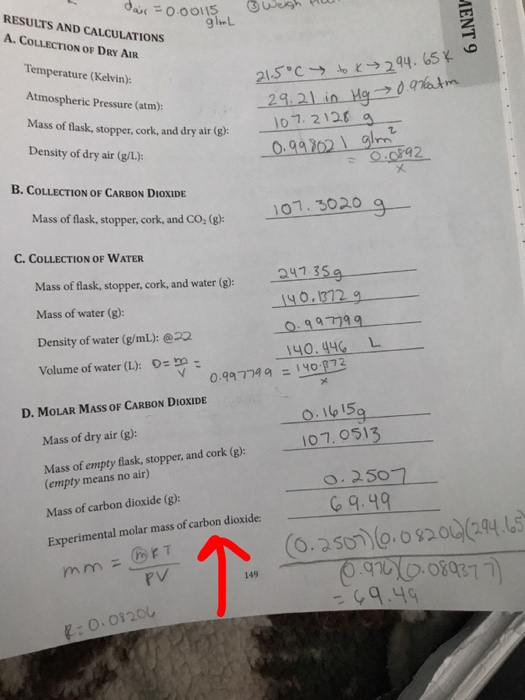 dair = 0.00115 g/mL
③ Weigh
MENT 9
RESULTS AND CALCULATIONS
A. COLLECTION OF DRY AIR
Temperature (Kelvin): 21.5°C → to K → 294.65K
Atmospheric Pressure (atm): 29.21 in Hg → 0.976atm
Mass of flask, stopper, cork, and dry air (g): 107.2128 g
Density of dry air (g/L): 0.998021 g/m²
= 0.0892
x
B. COLLECTION OF CARBON DIOXIDE
Mass of flask, stopper, cork, and CO₂ (g): 107.3020 g
C. COLLECTION OF WATER
Mass of flask, stopper, cork, and water (g): 247.35g
Mass of water (g): 140.1372 g
Density of water (g/mL): @22 0.997799
Volume of water (L): D = m/V = 140.446 L
0.997799 = 140.1372
x
D. MOLAR MASS OF CARBON DIOXIDE
Mass of dry air (g): 0.1615g
Mass of empty flask, stopper, and cork (g): 107.0513
(empty means no air)
Mass of carbon dioxide (g): 0.2507
Experimental molar mass of carbon dioxide: 69.49
mm = mRT
PV
(0.2507)(0.08206)(294.65
0.976)(0.089377)
= 69.49
149
R = 0.08206